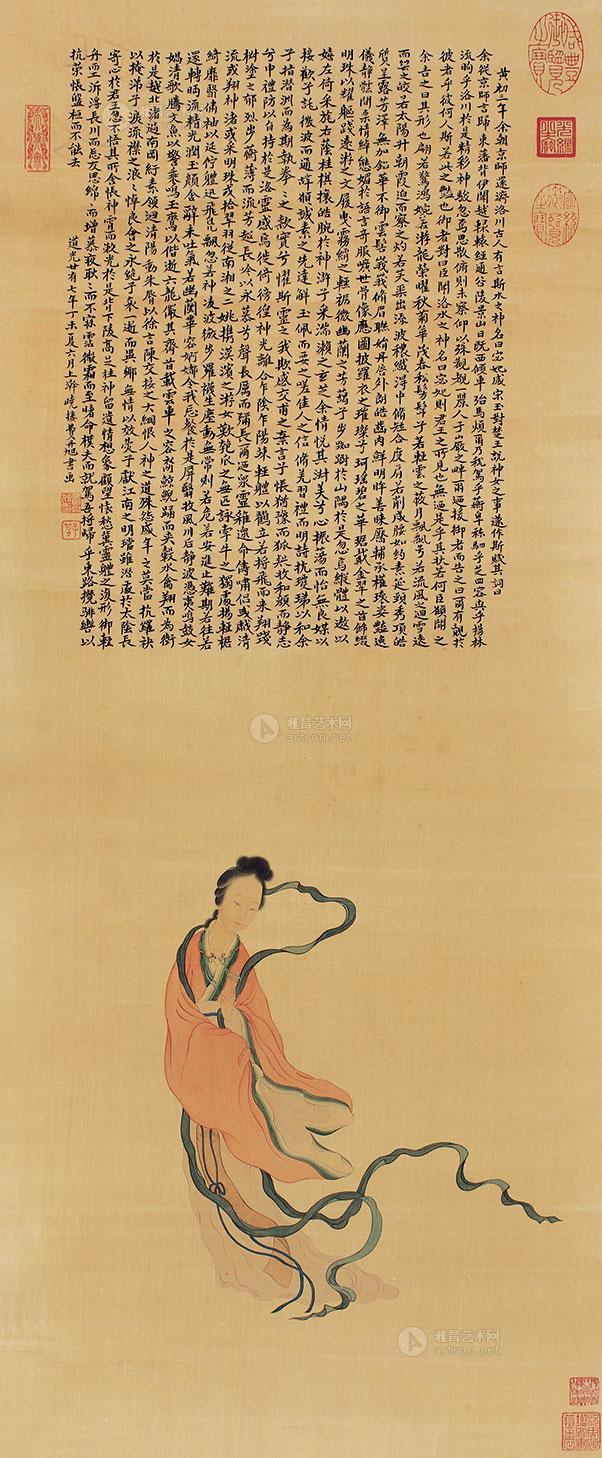 黃初三年余朝京師還濟洛川古人有言斯水之神名曰宓妃感宋玉對楚王說神女之事遂作斯賦其詞曰
余從京師言歸東藩背伊闕越轘轅經通谷陵景山日既西傾車殆馬煩爾乃稅駕乎蘅皋秣駟乎芝田容與乎楊林
流眄乎洛川於是精移神駭忽焉思散俯則未察仰以殊觀覩一麗人于巖之畔爾迺援御者而告之曰爾有覿於
彼者乎彼何人斯若此之豔也御者對曰臣聞洛水之神名曰宓妃則君王之所見也無迺是乎其狀若何臣願聞之
余告之曰其形也翩若驚鴻婉若游龍榮曜秋菊華茂春松髣髴兮若輕雲之蔽月飄颻兮若流風之迴雪遠
而望之皎若太陽升朝霞迫而察之灼若芙蕖出淥波穠纖得中脩短合度肩若削成腰如約素延頸秀項皓
質呈露芳澤無加鉛華不御雲髻峩峩脩眉聯娟丹唇外朗皓齒內鮮明眸善睞靨輔承權瓌姿豔逸
儀靜體閑柔情綽態媚於語言奇服曠世骨像應圖披羅衣之璀璨兮珥瑤碧之華琚戴金翠之首飾綴
明珠以耀軀踐遠游之文履曳霧綃之輕裾微幽蘭之芳藹兮步踟躕於山隅於是忽焉縱體以遨以
嬉左倚采旄右蔭桂旗攘皓腕於神滸兮采湍瀨之玄芝余情悅其淑美兮心振蕩而怡無良媒以
接歡兮託微波而通辭願誠素之先達解玉佩而要之嗟佳人之信脩羌習禮而明詩抗瓊珶以和余
兮指潛淵而為期執拳〻之款實兮懼斯靈之我欺感交甫之棄言兮悵猶豫而狐疑收和顏而靜志
兮申禮防以自持於是洛靈感焉徙倚徬徨神光離合乍陰乍陽竦輕軀以鶴立若將飛而未翔踐
椒塗之郁烈步蘅薄而流芳超長吟以永慕兮聲哀厲而彌長爾迺衆靈雜遝命儔嘯侶或戲清
流或翔神渚或采明珠或拾翠羽從南湘之二妃攜漢濱之游女歎匏瓜之無匹詠牽牛之獨處揚輕裾
綺靡翳脩袖以延佇體迅飛鳧飄忽若神淩波微步羅襪生塵動無常則若危若安進止難期若往若
還轉眄流精光潤玉顏含辭未吐氣若幽蘭華容婀娜令我忘餐於是屏翳收風川后靜波馮夷鳴鼓女
媧清歌騰文魚以警乘鳴玉鸞以偕逝六龍儼其齊首載雲車之容裔鯨鯢踊而夾轂水禽翔而為衛
於是越北沚過南岡紆素領迴清陽動朱唇以徐言陳交接之大綱恨人神之道殊怨盛年之莫當抗羅袂
以掩涕兮淚流襟之浪〻悼良會之永絕兮哀一逝而異鄉無情以效愛兮獻江南之明璫雖潛處於太陰長
寄心於君王忽不悟其所舍悵神霄而蔽光於是背下陵高足往神留遺情想象顧望懷愁冀靈體之復形御輕
舟而上泝浮長川而忘反思緜〻而增慕夜耿〻而不寐霑微霜而至曙命僕夫而就駕吾將歸乎東路攬騑轡以
抗策悵盤桓而不能去
道光廿有七年丁未夏六月上澣曉樓費丹旭書畫
雅昌艺术网
artron.net
雅昌艺术网
artron.net